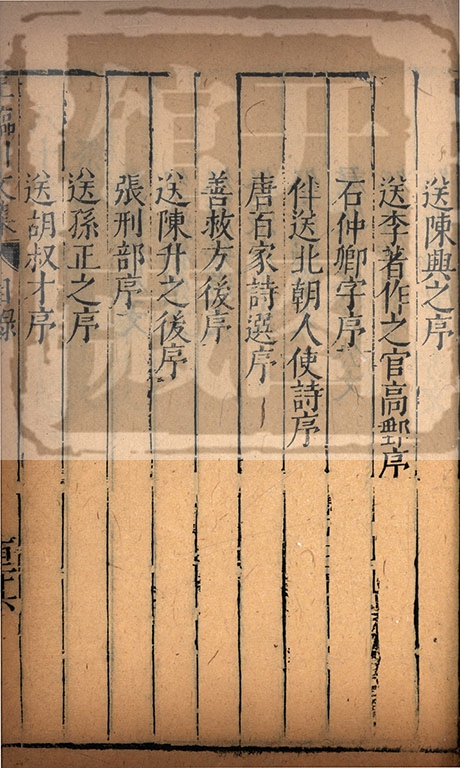 送陳興之序
送李著作之官高郵序
石仲卿字序
伴送北朝人使詩序
唐百家詩選序
善救方後序
送陳升之後序
張刑部序
送孫正之序
送胡叔才序
王臨川文集 目錄